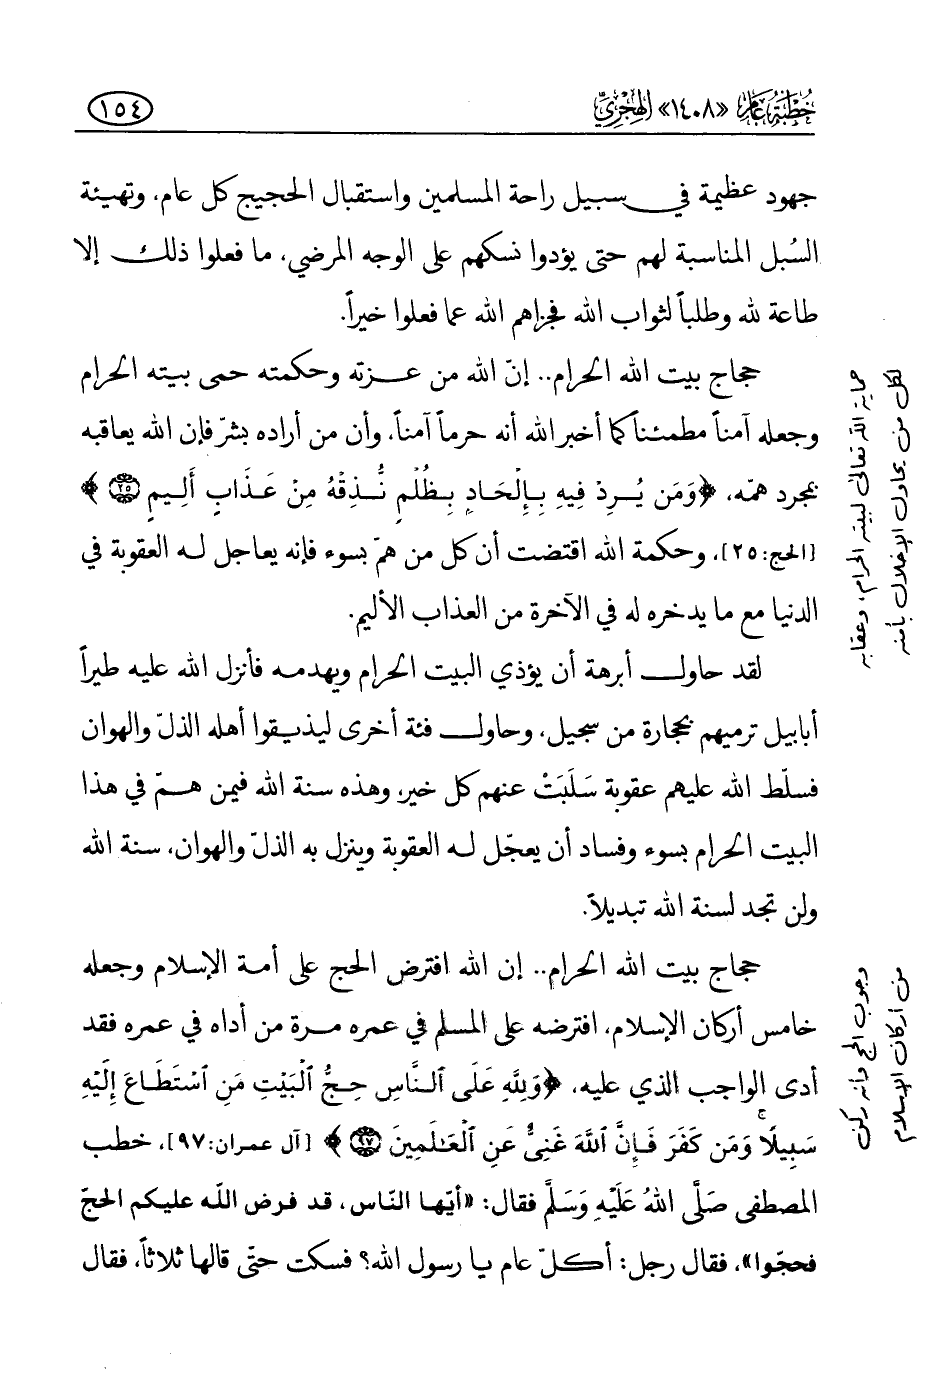 خُطْبَةُ عَامِ «١٤٠٨» الهِجْرِيِّ
١٥٤
جهود عظيمة في سبيل راحة المسلمين واستقبال الحجيج كل عام، وتهيئة
السُبل المناسبة لهم حتى يؤدوا نسكهم على الوجه المرضي، ما فعلوا ذلك إلا
طاعة لله وطلباً لثواب الله فجزاهم الله عما فعلوا خيراً.
حجاج بيت الله الحرام.. إنّ الله من عزته وحكمته حمى بيته الحرام
وجعله آمناً مطمئناً كما أخبر الله أنه حرماً آمناً، وأن من أراده بشرّ فإن الله يعاقبه
بمجرد همّه، ﴿وَمَن يُرِدْ فِيهِ بِإِلْحَادٍ بِظُلْمٍ نُّذِقْهُ مِنْ عَذَابٍ أَلِيمٍ ٢٥﴾
[الحج:٢٥]، وحكمة الله اقتضت أن كل من همّ بسوء فإنه يعاجل له العقوبة في
الدنيا مع ما يدخره له في الآخرة من العذاب الأليم.
لقد حاول أبرهة أن يؤذي البيت الحرام ويهدمه فأنزل الله عليه طيراً
أبابيل ترميهم بحجارة من سجيل، وحاول فئة أخرى ليذيقوا أهله الذلّ والهوان
فسلّط الله عليهم عقوبة سَلَبَتْ عنهم كل خير، وهذه سنة الله فيمن همّ في هذا
البيت الحرام بسوء وفساد أن يعجّل له العقوبة وينزل به الذلّ والهوان، سنة الله
ولن تجد لسنة الله تبديلاً.
حجاج بيت الله الحرام.. إن الله افترض الحج على أمة الإسلام وجعله
خامس أركان الإسلام، افترضه على المسلم في عمره مرة من أداه في عمره فقد
أدى الواجب الذي عليه، ﴿وَلِلَّهِ عَلَى ٱلنَّاسِ حِجُّ ٱلْبَيْتِ مَنِ ٱسْتَطَاعَ إِلَيْهِ
سَبِيلًا ۚ وَمَن كَفَرَ فَإِنَّ ٱللَّهَ غَنِيٌّ عَنِ ٱلْعَـٰلَمِينَ ٩٧﴾ [آل عمران:٩٧]، خطب
المصطفى صَلَّى اللهُ عَلَيْهِ وَسَلَّمَ فقال: «أيّها النّاس، قد فرض اللّه عليكم الحجّ
فحجّوا»، فقال رجل: أكلّ عام يا رسول الله؟ فسكت حتّى قالها ثلاثاً، فقال
حماية الله تعالى لبيته الحرام، وعقابه
لكل من يحاول الإخلال بأمنه
وجوب الحج وأنه ركن
من أركان الإسلام